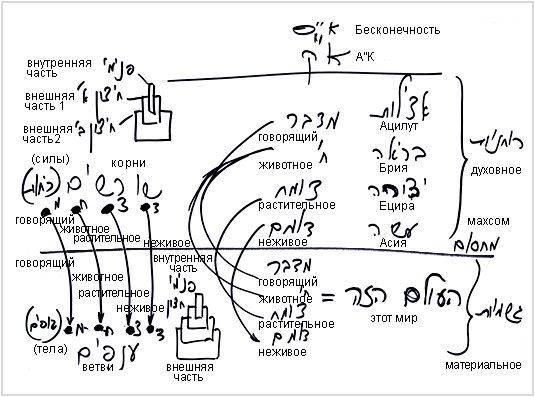 א"ס Бесконечность
א"ק А"К
внутренняя часть פנימי
внешняя часть 1 חיצון א'
внешняя часть2 חיצון ב'
(силы) корни
(כוחות) שורשים
מ ח צ ד
говорящий
животное
растительное
неживое
מדבר
говорящий
ח'
животное
צומח
растительное
דומם
неживое
אצילות
Ацилут
בריאה
Брия
יצירה
Ецира
עשיה
Асия
רוחניות
духовное
махсом
מחסום
говорящий
животное
растительное
неживое
внутренняя часть
פנימי
חיצון
внешняя часть
(גופים) מ ח צ ד
(тела) ענפים
ветви
מדבר
говорящий
животное
צומח
растительное
דומם
неживое
= העולם הזה
этот мир
גשמיות
материальное